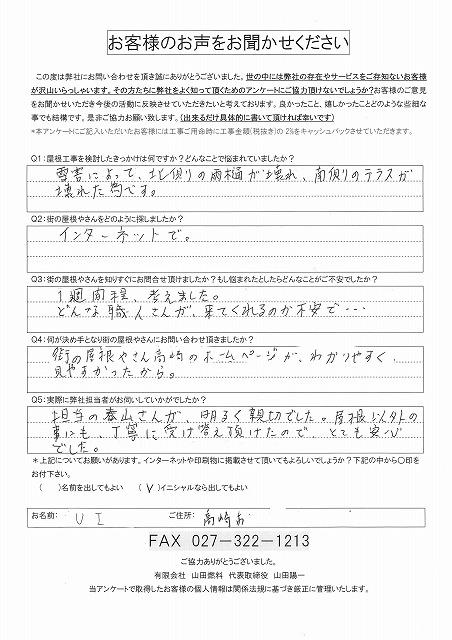 お客様のお声をお聞かせください
この度は弊社にお問い合わせを頂き誠にありがとうございました。世の中には弊社の存在やサービスをご存知ないお客様
が沢山いらっしゃいます。その方たちに弊社をよく知って頂くためのアンケートにご協力頂けないでしょうか?お客様のご意見
をお聞かせいただき今後の活動に反映させていただきたいと考えております。良かったこと、嬉しかったことどのような些細な
事でも結構です。是非ご協力お願い致します。(出来るだけ具体的に書いて頂ければ幸いです)
*本アンケートにご記入いただいたお客様には工事ご用命時に工事金額(税抜き)の 2%をキャッシュバックさせていただきます。
Q1:屋根工事を検討したきっかけは何ですか?どんなことで悩まれていましたか?
雪害によって、北側の雨樋が壊れ、南側のテラスが
壊れた為です。
Q2:街の屋根やさんをどのように探しましたか?
インターネットで。
Q3:街の屋根やさんを知りすぐにお問合せ頂けましたか?もし悩まれたとしたらどんなことがご不安でしたか?
1週間程、考えました。
どんな職人さんが、来てくれるのか不安で…
Q4:何が決め手となり街の屋根やさんにお問い合わせ頂きましたか?
街の屋根やさん高崎のホームページが、わかりやすく、
見やすかったから。
Q5:実際に弊社担当者がお伺いしていかがでしたか?
担当の春山さんが、明るく親切でした。屋根以外の
事にも、丁寧に受け答え頂けたので、とても安心
でした。
*上記についてお願いがあります。インターネットや印刷物に掲載させて頂いてもよろしいでしょうか?下記の中から〇印を
お付下さい。
( )名前を出してもよい (V)イニシャルなら出してもよい
お名前: U I ご住所: 高崎市
FAX 027-322-1213
ご協力ありがとうございました。
有限会社 山田燃料 代表取締役 山田陽一
当アンケートで取得したお客様の個人情報は関係法規に基づき厳正に管理いたします。